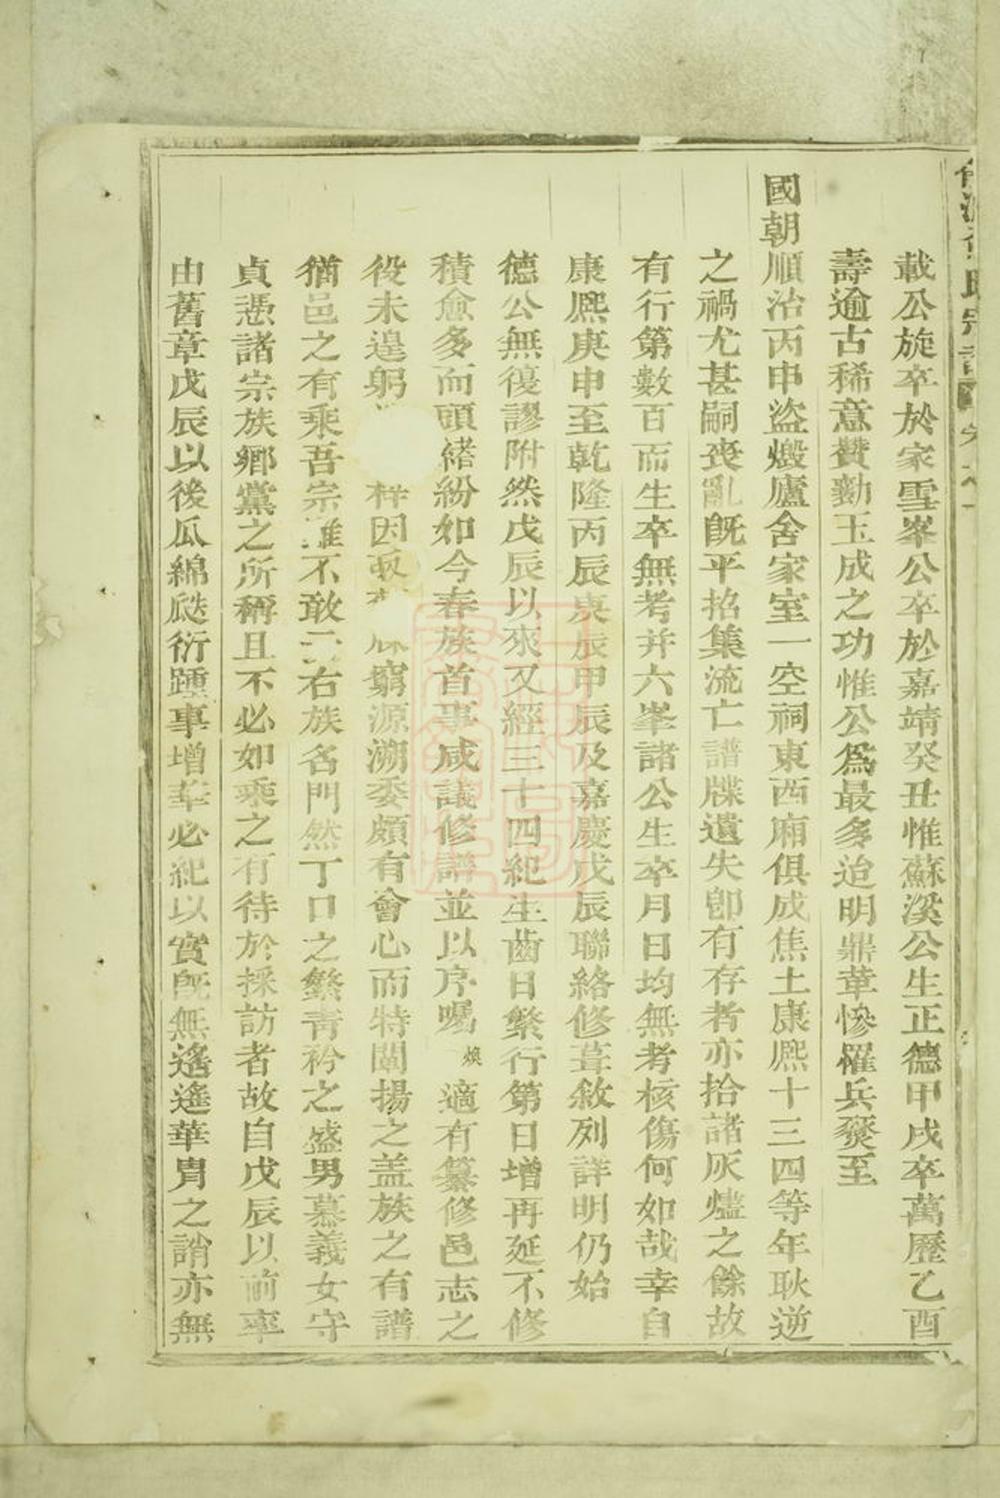 氏宗譜
載公旋卒於家雪峯公卒於嘉靖癸丑惟蘇溪公生正德甲戌卒萬歷乙酉
壽逾古稀意贊勷玉成之功惟公爲最多迨明鼎革慘罹兵燹至
國朝順治丙申盜燬廬舍家室一空祠東西廂俱成焦土康熙十三四等年耿逆
之禍尤甚嗣喪亂旣平招集流亡譜牒遺失卽有存者亦拾諸灰燼之餘故
有行第數百而生卒無考并六峯諸公生卒月日均無考核傷何如哉幸自
康熙庚申至乾隆丙辰庚辰甲辰及嘉慶戊辰聯絡修葺敘列詳明仍始
德公無復謬附然戊辰以來又經三十四紀生齒日繁行第日增再延不修
積愈多而頭緖紛如今春族首事咸議修譜並以序囑煥適有纂修邑志之
役未遑躬梓因窮源溯委頗有會心而特闡揚之盖族之有譜
猶邑之有乘吾宗雖不敢云右族名門然丁口之繁靑衿之盛男慕義女守
貞憑諸宗族鄉黨之所稱且不必如乘之有待於採訪者故自戊辰以前率
由舊章戊辰以後瓜綿瓞衍踵事增華必紀以實旣無遙遙華胄之誚亦無